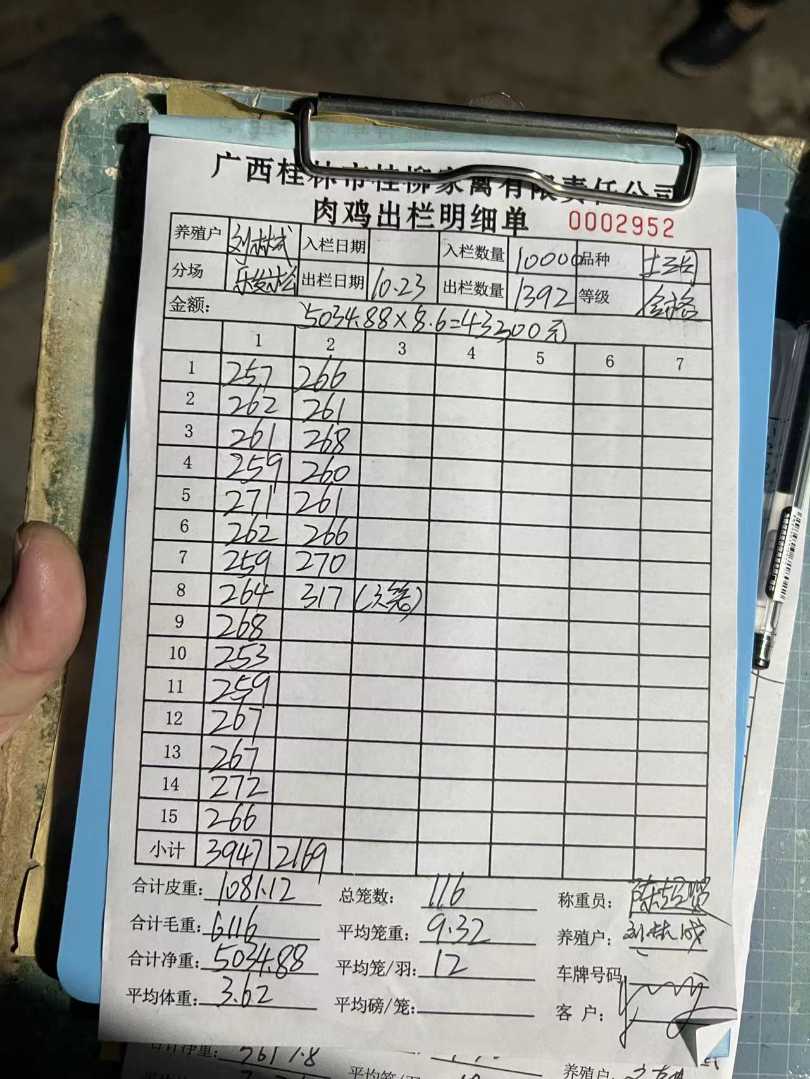 广西桂林市桂柳家禽有限责任公司
肉鸡出栏明细单 0002952
养殖户 入栏日期 入栏数量 10000 品种
分场 出栏日期 10.23 出栏数量 1392 等级 合格
金额: 5034.88×8.6=43300元
1 2 3 4 5 6 7
1 257 266
2 262 261
3 261 268
4 259 260
5 271 261
6 262 266
7 259 270
8 264 317
9 268
10 253
11 259
12 267
13 267
14 272
15 266
小计 3947 2169
合计皮重: 1081.12 总笼数: 116 称重员:
合计毛重: 6116 平均笼重: 9.32 养殖户:
合计净重: 5034.88 平均笼/羽: 12 车牌号码
平均体重: 3.62 平均磅/笼: 客 户:
合计净重: 5617.8 养殖户: